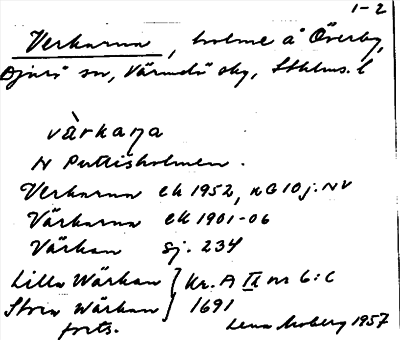 1-2
Verkarna, holme å Överby,
Djurö sn, Värmdö skg, Sthlms. l
vàrkaɳa
N Puttisholmen.
Verkarna ek 1952, nG10j. NV
Värkarna ek 1901-06
Värkan Sj. 234
Lilla Wärkan } Kr. A IX nr 6:C
Stora Wärkan } 1691
forts. Lena Moberg 1957